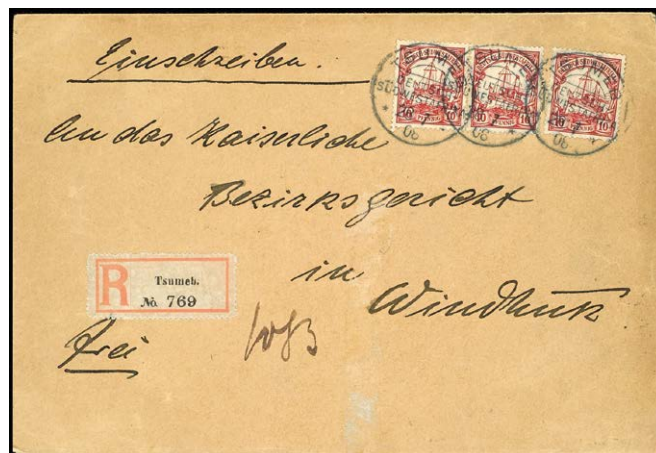 Einschreiben.
An das Kaiserliche
Bezirksgericht
in
Windhuk
R
Tsumeb.
No. 769
frei
TSUMEB
26 7
06
10 10